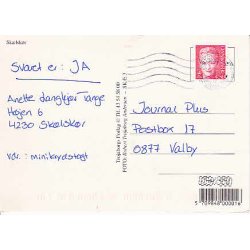 Skælskør
Svaret er: JA
Anette Langkjær Tange
Højen 6
4230 Skælskør
vdr.: minikrydstogt
Journal Plus
Postbox 17
0877 Valby
5 704948 000016